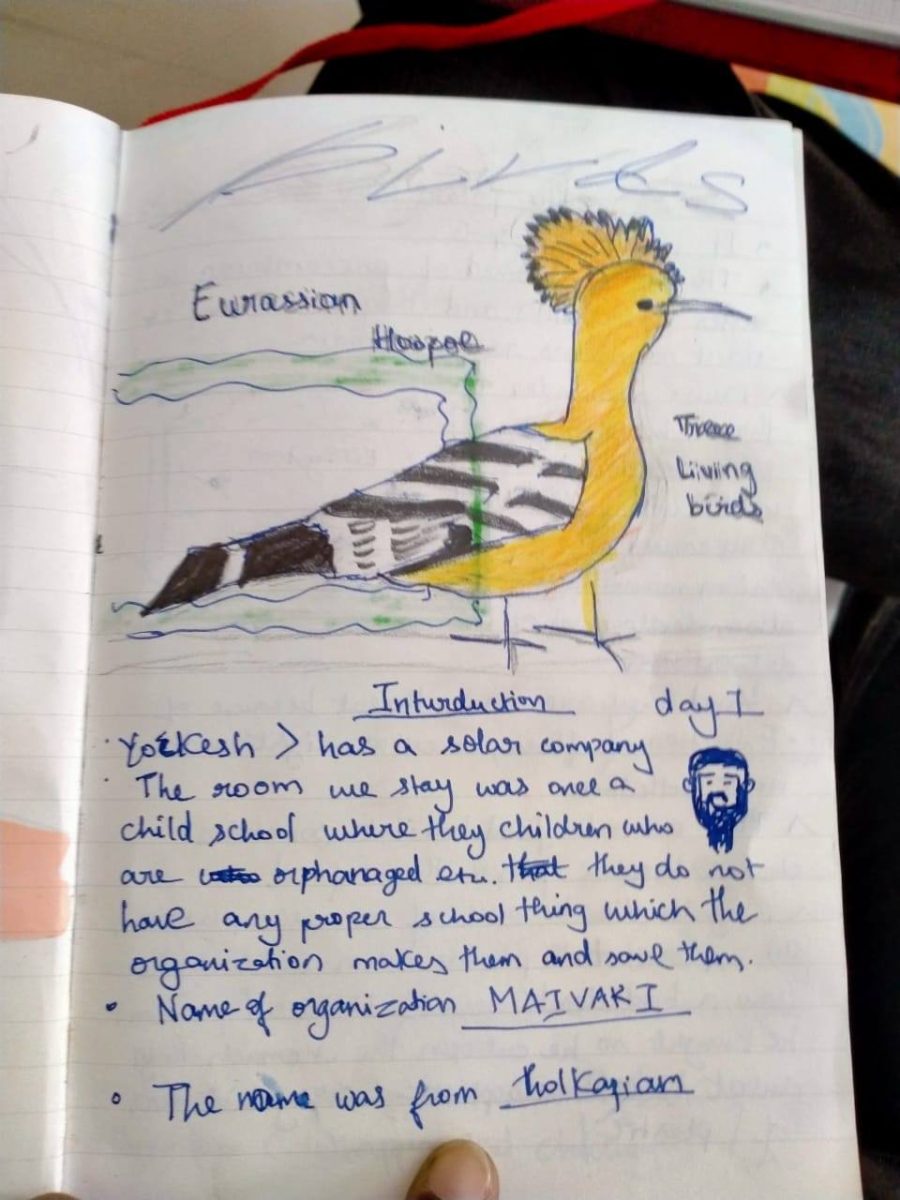 Birds
Eurassian
Hoopoe
Three
Living
birds
Inturduction day 1
Yorkesh > has a solar company
The room we stay was once a
child school where they children who
are orphanaged etc. that they do not
have any proper school thing which the
organization makes them and save them.
• Name of organization MAIVAKI
• The name was from tholkapiam